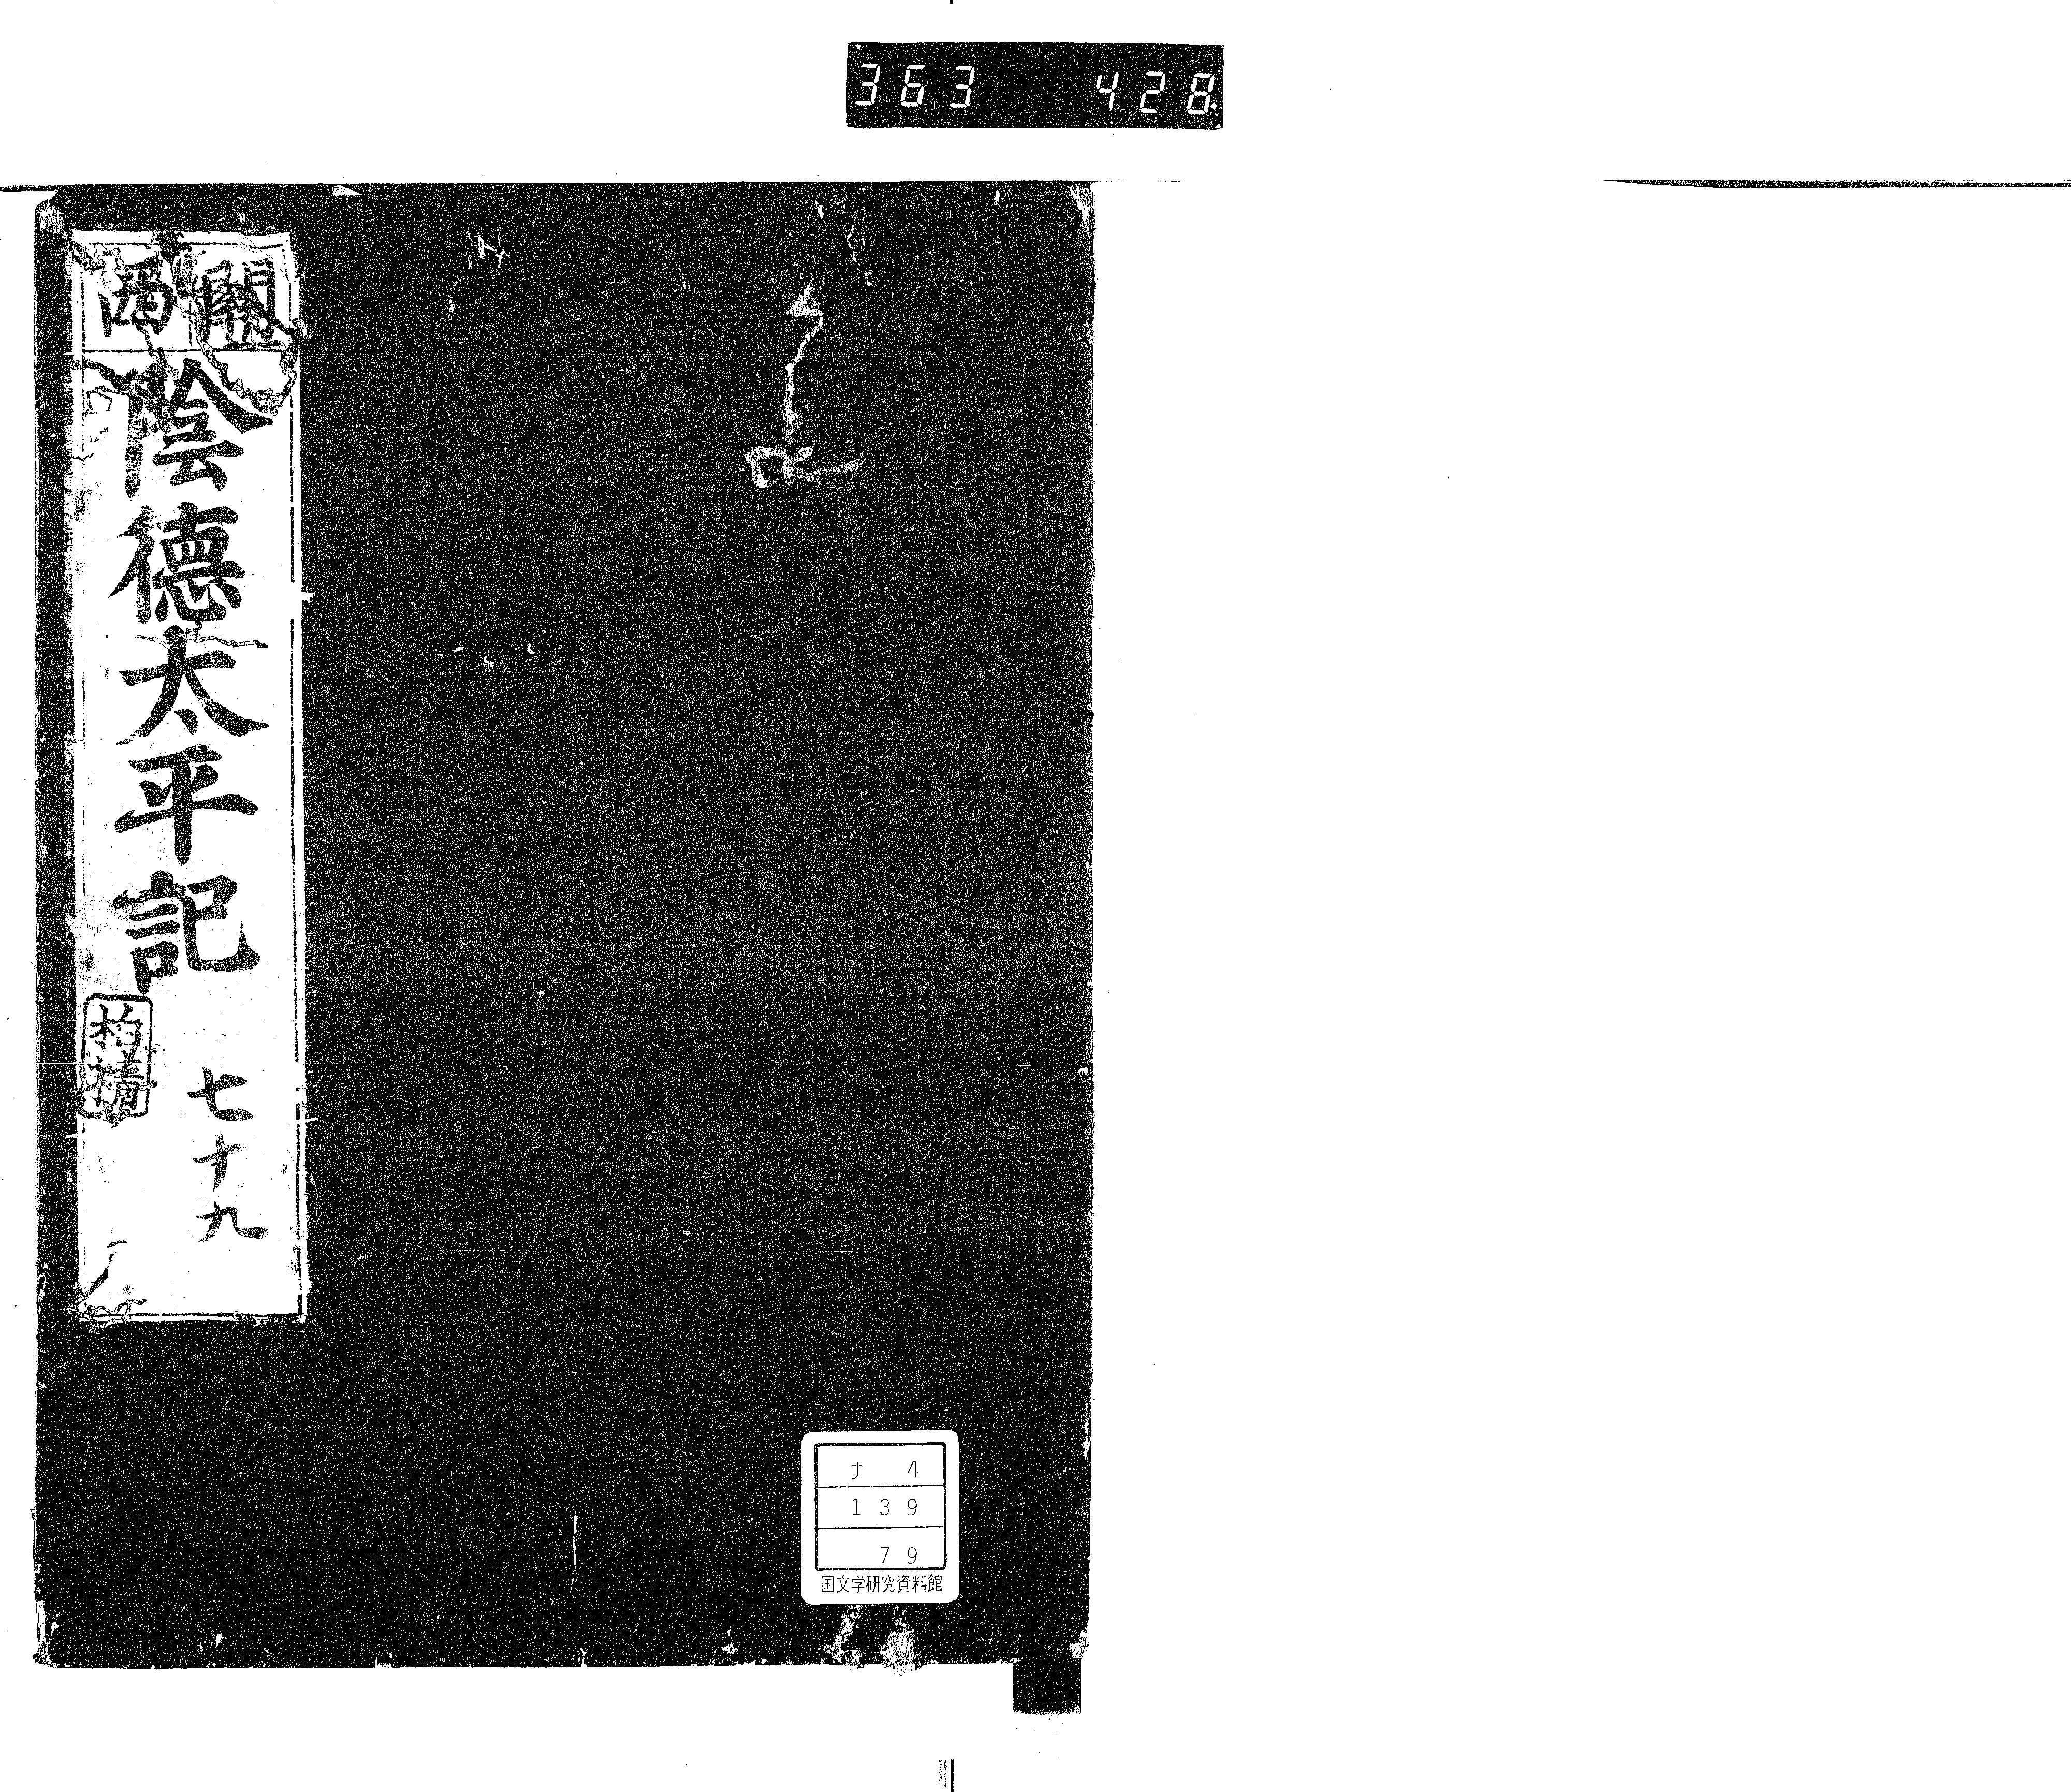 363 428
關西
陰德太平記
七十九
ナ 4
139
79
国文学研究資料館